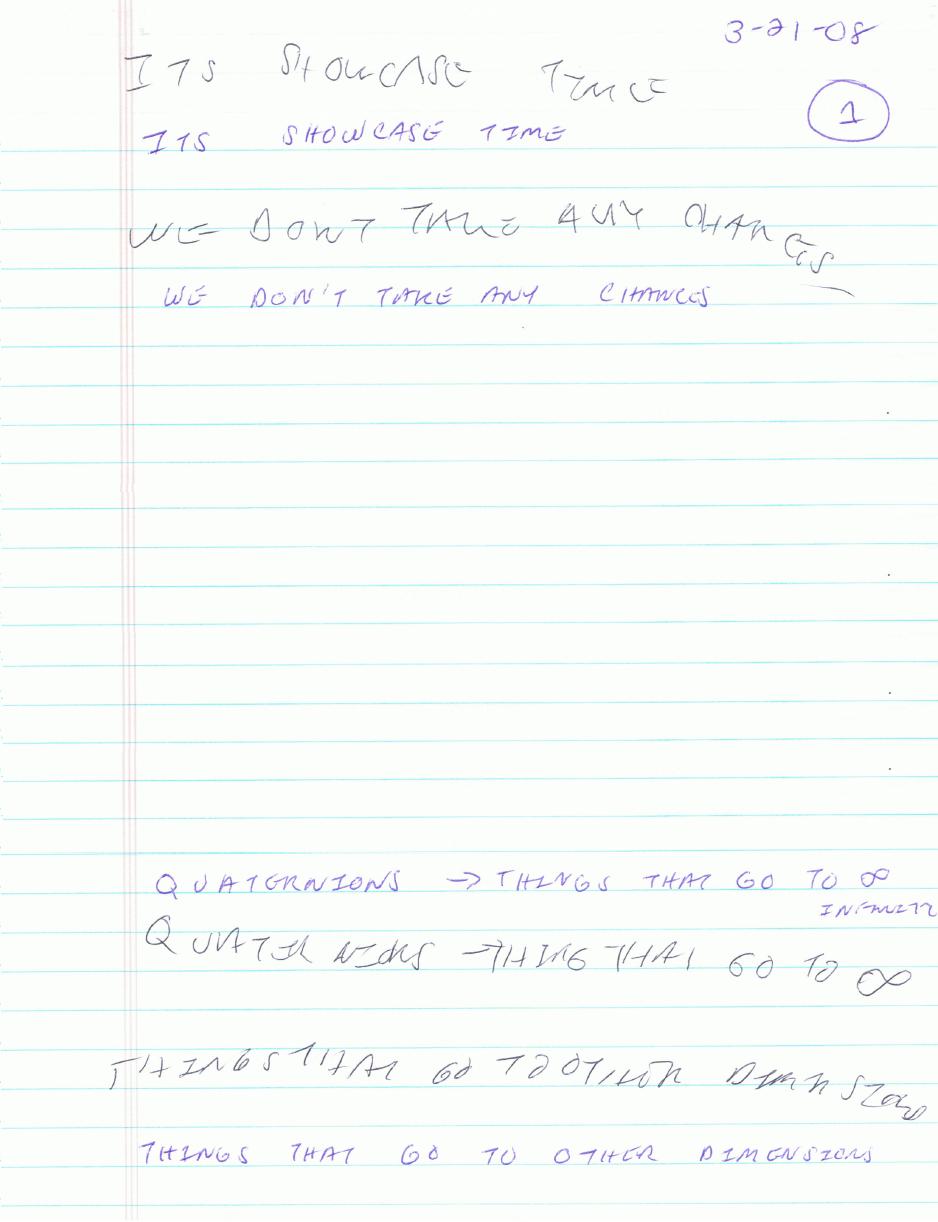 3-21-08
ITS SHOWCASE TIME
1
ITS SHOWCASE TIME
WE DONT TAKE ANY CHANCES
WE DON'T TAKE ANY CHANCES
QUATERNIONS → THINGS THAT GO TO ∞
INFINITY
QUATERNIONS → THING THAT GO TO ∞
THINGS THAT GO TO OTHER DIMENSIONS
THINGS THAT GO TO OTHER DIMENSIONS